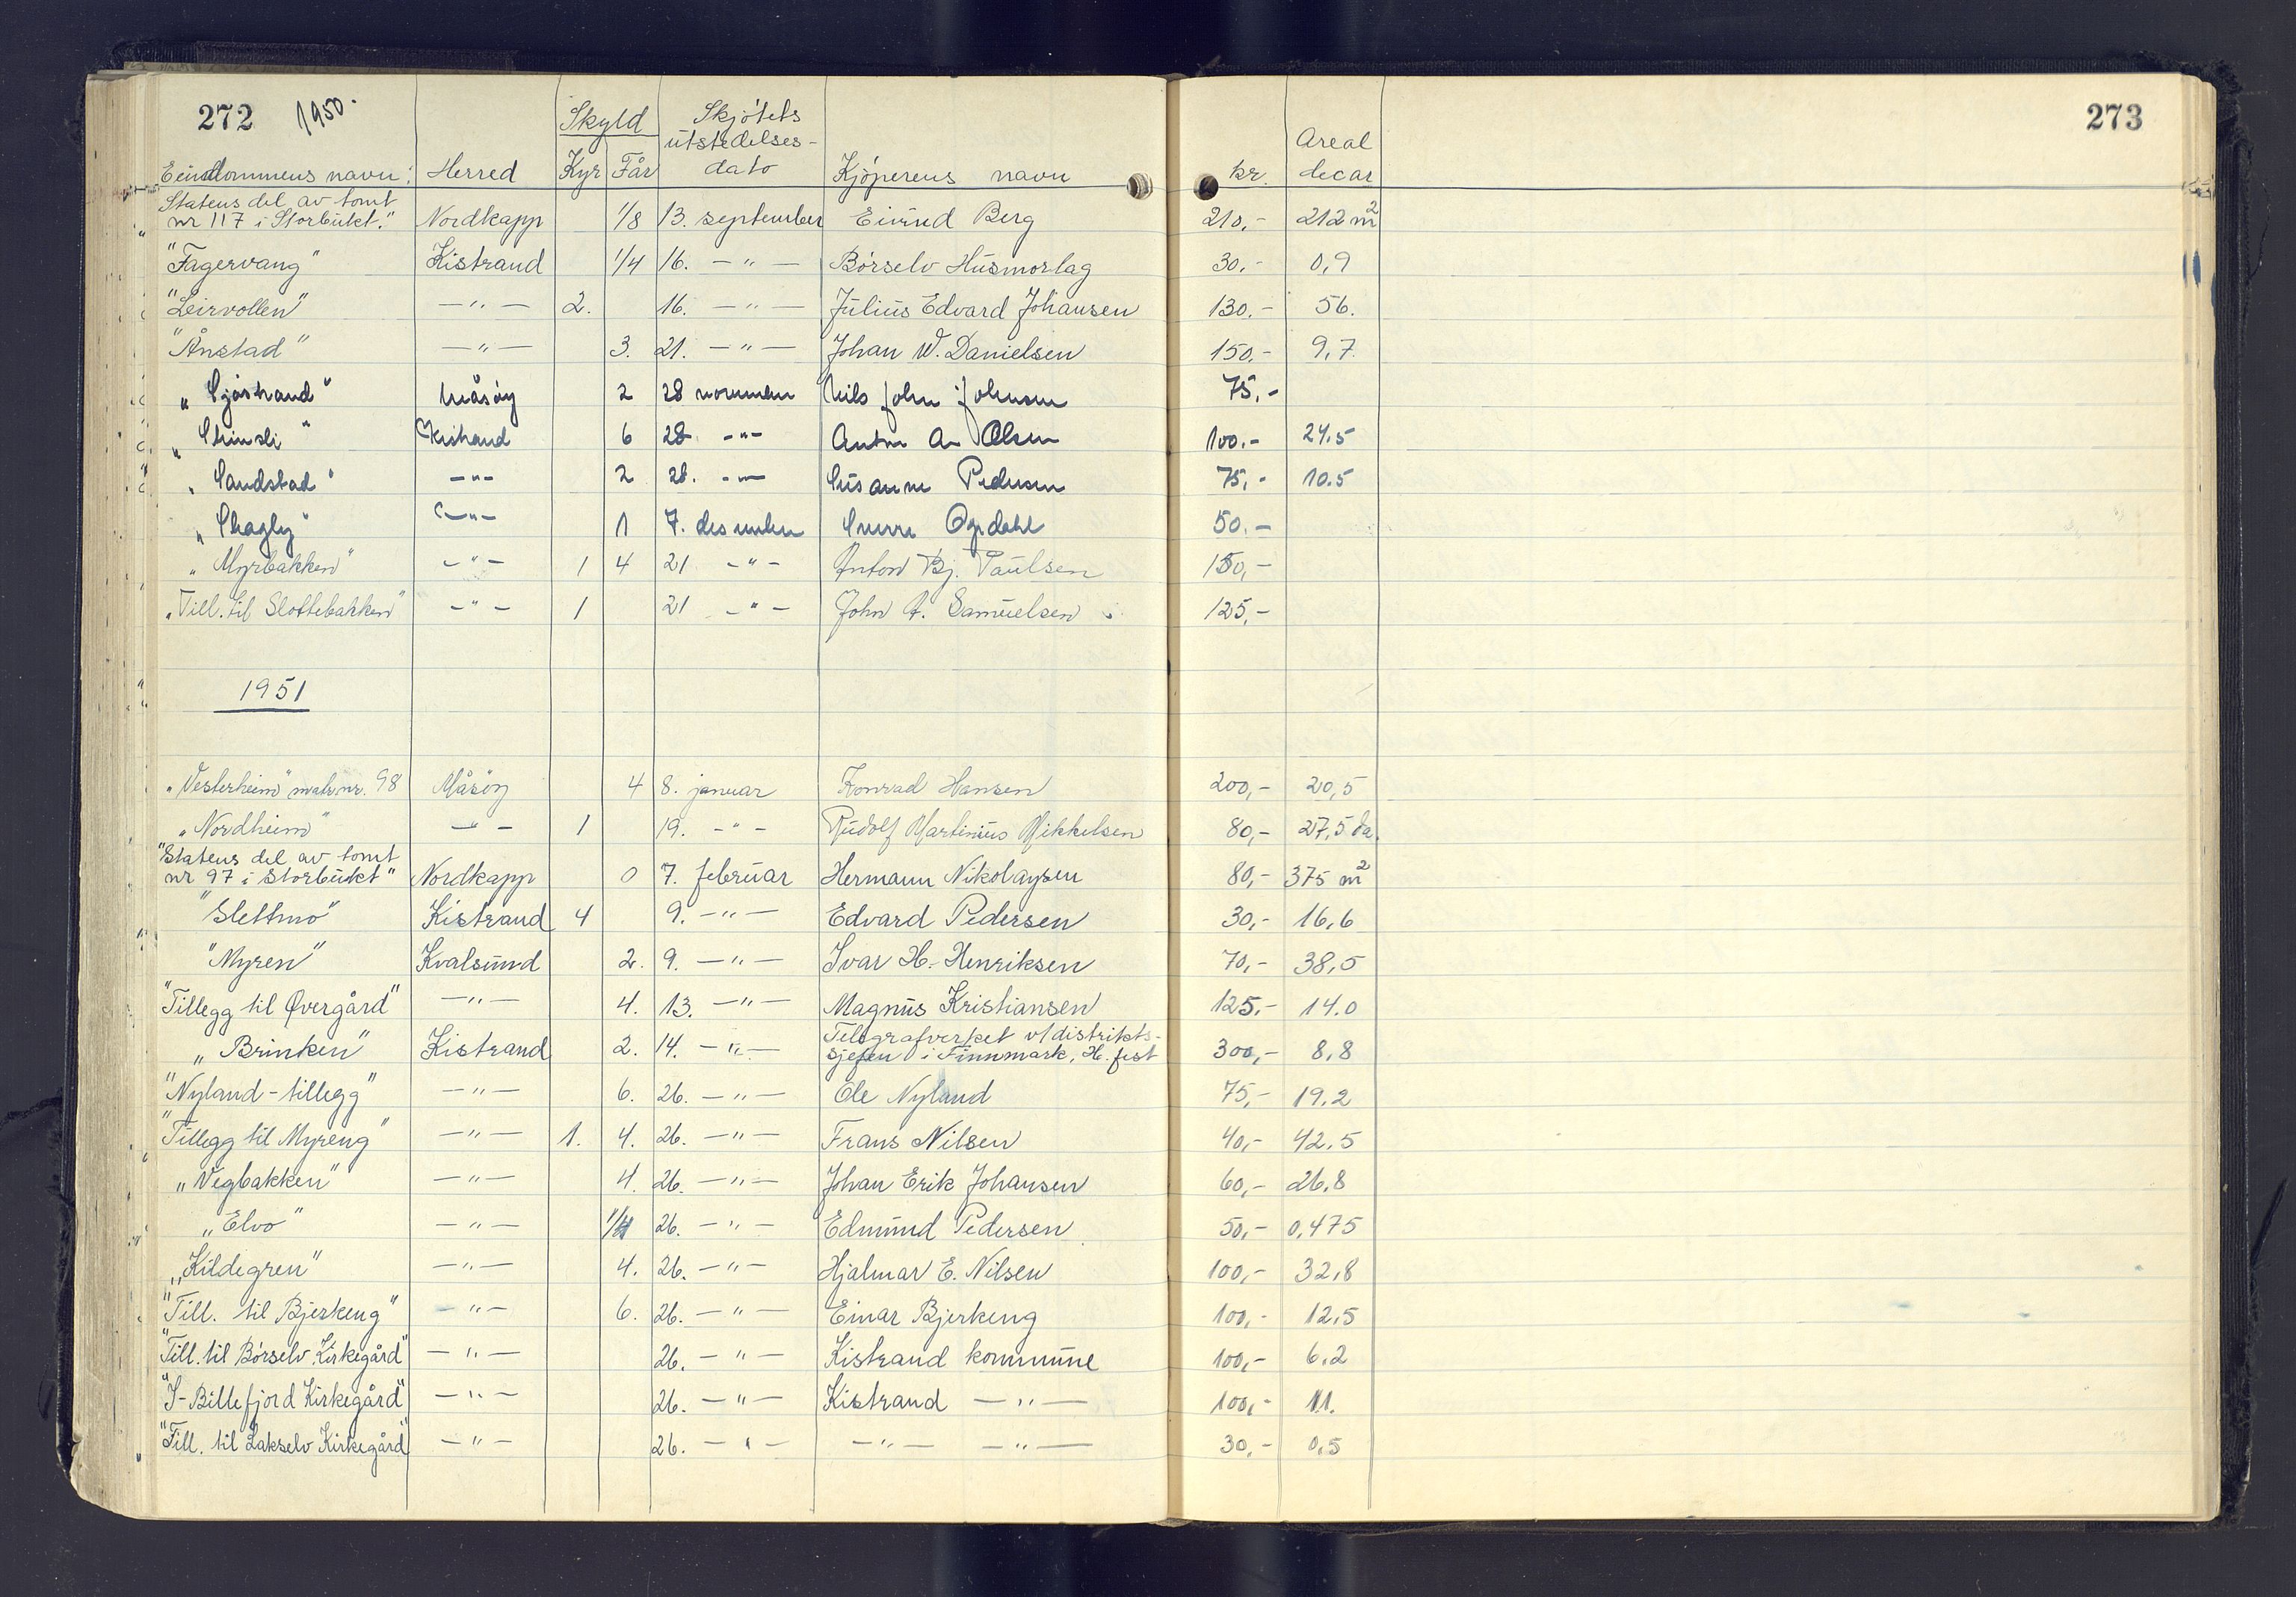 272 1950. 273
Skyld Skjötets
utstedelses- Areal
Eiendommens navn: Herred Kyr Får dato Kjöperens navn kr. decar
"Statens del av tomt
nr 117 i Storbukt." Nordkapp 1/8 13. september Eivind Berg 210,- 212 m2
"Fagervang" Kistrand 1/4 16. — " — Börselv Husmorlag 30,- 0,9
"Leirvollen" — " — 2. 16. — " — Julius Edvard Johansen 130.- 56.
"Ånstad" — " — 3. 21. — " — Johan W. Danielsen 150.- 9,7
"Sjøstrand" Måsöy 2 28 november Nils John Johnsen 75,-
Kistrand 6 28 - " - Anton A. Olsen 100.- 24.5
"Sandstad" - " - 2 28. - " - Susanne Pedersen 75,- 10.5
"Skogly" - " - 1 7. desember Sverre Opdahl 50.-
"Myrbakken" - " - 1 4 21 - " - Anton Bj. Paulsen 150,-
"Till. til Slottebakken" - " - 1 21 - " - John A. Samuelsen 125,-
1951
"Vesterheim" matr.nr. 98 Måsöy 4 8. januar Konrad Hansen 200,- 20,5
"Nordheim" — " — 1 19. - " - Rudolf Martinius Mikkelsen 80,- 27,5 da.
"Statens del av tomt
nr 97 i Storbukt" Nordkapp 0 7. februar Hermann Nikolaysen 80,- 375 m2
"Slettmo" Kistrand 4 9. - " - Edvard Pedersen 30,- 16,6
"Myren" Kvalsund 2. 9. — " — Ivar H. Henriksen 70,- 38,5
"Tillegg til Øvergård" — " — 4. 13. — " — Magnus Kristiansen 125.- 14.0
Telegrafverket v/distrikts-
"Brinken" Kistrand 2. 14. — " — sjefen i Finnmark, H.fest 300,- 8,8
"Nyland-tillegg" — " — 6. 26. — " — Ole Nyland 75,- 19.2
"Tillegg til Myreng" — " — 1. 4. 26. — " — Frans Nilsen 40,- 42.5
"Vegbakken" — " — 4. 26. — " — Johan Erik Johansen 60,- 26.8
"Elvo" — " — 1/4 26. — " — Edmund Pedersen 50,- 0,475
"Kildegren" — " — 4. 26. — " — Hjalmar E. Nilsen 100,- 32,8
"Till. til Bjerkeng" — " — 6. 26. — " — Einar Bjerkeng 100,- 12.5
"Till. til Börselv Kirkegård" — " — 26. — " — Kistrand kommune 100,- 6.2
"I-Billefjord Kirkegård" — " — 26. — " — Kistrand — " — 100,- 11.
"Till. til Lakselv Kirkegård" — " — 26. — " — — " — — " — 30,- 0.5